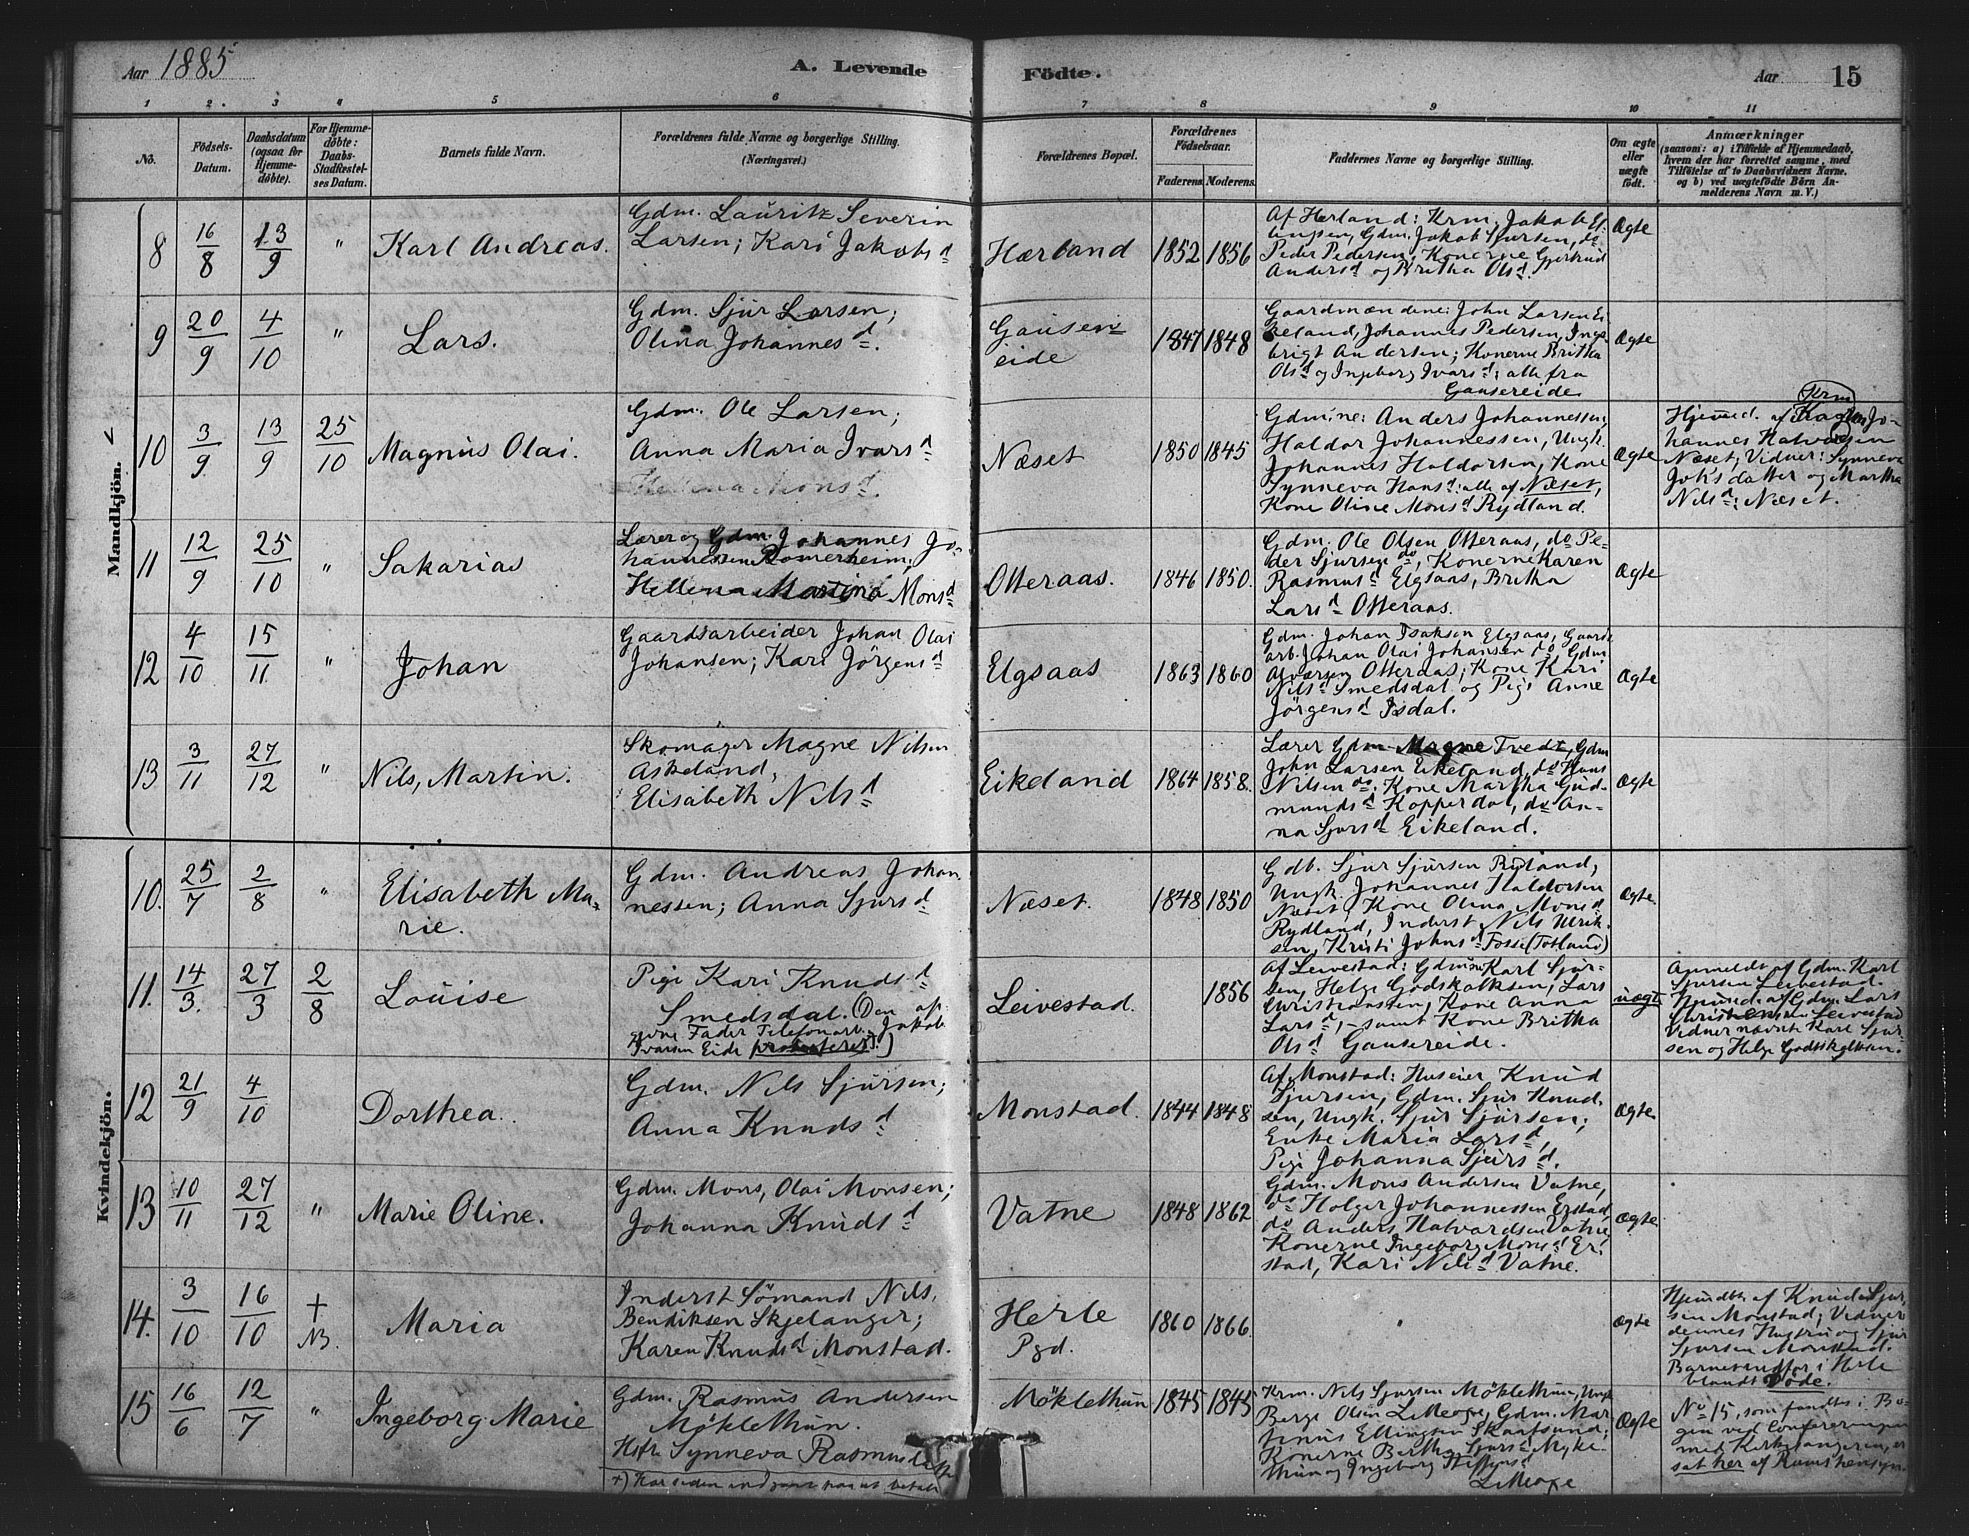 Aar 1885
A. Levende
Födte.
Aar
15
1 2. 3 4 5 6 7 8 9 10 11
No.
Födsels-Datum.
Daabsdatum (ogsaa for Hjemme-döbte).
For Hjemme-döbte: Daabs-Stadfæstelses Datum.
Barnets fulde Navn.
Forældrenes fulde Navne og borgerlige Stilling. (Næringsvei.)
Forældrenes Bopæl.
Forældrenes Födselsaar.
Faderens. Moderens.
Faddernes Navne og borgerlige Stilling.
Om ægte eller uægte födt.
Anmærkninger
(saasom: a) i Tilfælde af Hjemmedaab, hvem der har forrettet samme, med Tilföielse af to Daabsvidners Navne. og b) ved uægtefödte Börn Anmelderens Navn m. V.)
Mandkjön.
8 16/8 13/9 " Karl Andreas.
Gdm. Lauritz Severin
Larsen; Kari Jakobsd
Hærland 1852 1856
Af Hærland: Krm. Jakob
Gdm. Jakob Sjursen, do
Peder Pedersen, Konerne Gjertrud
Andersd og Britha Olsd.
Ægte
9 20/9 4/10 " Lars.
Gdm. Sjur Larsen;
Olina Johannesd.
Gausereide 1847 1848
Gaardmændene: John Larsen Ei-
keland, Johannes Pedersen, Inge-
brigt Andersen; Konerne Britha
Olsd og Ingeborg Ivarsd; alle fra
Gausereide
Ægte
10 3/9 13/9 25/10 Magnus Olai.
Gdm. Ole Larsen;
Anna Maria Ivarsd
Hellena Monsd.
Næset 1850 1845
Gdm:ne: Anders Johannessen,
Haldor Johannessen, Ungk.
Johannes Haldorsen, Kone
Synneva Hansd: alle af Næset,
Kone Oline Monsd Rydland.
Ægte
Krm
Hjemmed. af Jo-
hannes Halvorsen
Næset, Vidner: Synneva
Joh's datter og Martha
Nilsd: Næset.
11 12/9 25/10 " Sakarias
Lærer og Gdm. Johannes Jo-
hannessen Romerheim,
Hellena Martina Monsd
Otteraas. 1846 1850.
Gdm. Ole Olsen Otteraas, do Pe-
der Sjursen do, Konerne Karen
Rasmusd Elgsaas, Britha
Larsd Otteraas.
Ægte
12 4/10 15/11 " Johan
Gaardsarbeider Johan Olai
Johansen; Kari Jörgensd
Elgsaas 1863 1860
Gdm. Johan Isaksen Elgsaas, Gaards
arb. Johan Olai Johansen do, Gdm
Otteraas; Kone Kari
Nilsd Smedsdal og Pige Anne
Jörgensd Isdal.
Ægte
13 3/11 27/12 " Nils, Martin.
Skomager Magne Nilsen
Askeland,
Elisabeth Nilsd
Eikeland 1864 1858.
Lærer Gdm. Magne Tvedt, Gdm
John Larsen Eikeland, do Hans
Nilsen do. Kone Martha Gud-
mundsd Kopperdal, do An-
na Sjursd Eikeland.
Ægte
Kvindekjön.
10. 25/7 2/8 " Elisabeth Ma-
rie.
Gdm. Andreas Johan
nessen; Anna Sjursd
Næset. 1848 1850
Gdb. Sjur Sjursen Rydland,
Ungk. Johannes Haldorsen
Næset, Kone Olina Monsd
Rydland, Inderst Nils Ulrik-
sen, Kristi Johnsd Fosse (Totland)
Ægte
11. 14/3. 27/3 2/8 Louise
Pige Kari Knudsd
Smedsdal. (Den op-
givne Fader Telefonarb. Jakob
Ivarsen Eide protesterer.)
Leivestad. 1856
Af Leivestad: Gdmne Karl Sjur-
sen, Helge Godskalksen, Lars
Christiansen, Kone Anna
Larsd, samt Kone Britha
Olsd Gausereide.
uægte
Anmeldt af Gdm. Karl
Sjursen Leivestad.
Hjemmed. af Gdm. Lars
Christensen Leivestad
Vidner nævnte Karl Sjur-
sen og Helge Godtskalksen.
12 21/9 4/10 Dorthea.
Gdm. Nils Sjursen;
Anna Knudsd
Monstad. 1844 1848
Af Monstad: Huseier Knud
Sjursen, Gdm. Sjur Knud-
sen, Ungk. Sjur Sjursen;
Enke Maria Larsd,
Pige Johanna Sjursd.
Ægte
13 10/11 27/12 " Marie Oline.
Gdm. Mons, Olai Monsen;
Johanna Knudsd
Vatne 1848 1862
Gdm. Mons Andersen Vatne,
do Holger Johannessen Erstad,
do Anders Halvardsen Vatne,
Konerne Ingeborg Monsd Er-
stad, Kari Nilsd Vatne.
Ægte
14. 3/10 16/10 + NB. Maria
Inderst Sömand Nils
Bendiksen Skjelanger;
Karen Knudsd Monstad.
Herle
Pgd. 1860 1866.
Ægte
Hjemdbt af Knud Sjur-
sen Monstad; Vidner
dennes Hustru og Sjur
Sjursen Monstad.
Barnet indfør i Herle
blandt Døde.
15 16/6 12/7 " Ingeborg Marie
Gdm. Rasmus Andersen
Möklethun.
Hstr. Synneva Rasmusdatter
Möklethun 1845 1845
Krm. Nils Sjursen Möklethun, Ungk
Berge Olsen Gdm. Mar
tinus Ellingsen Skaftsund;
Konerne Bertha Sjursd Mykle
thun og Ingeborg
Ægte
No 15, som fandtes i Bo-
gen ved Confereringen
med Kirkesangeren, er
sat her af
+) har siden